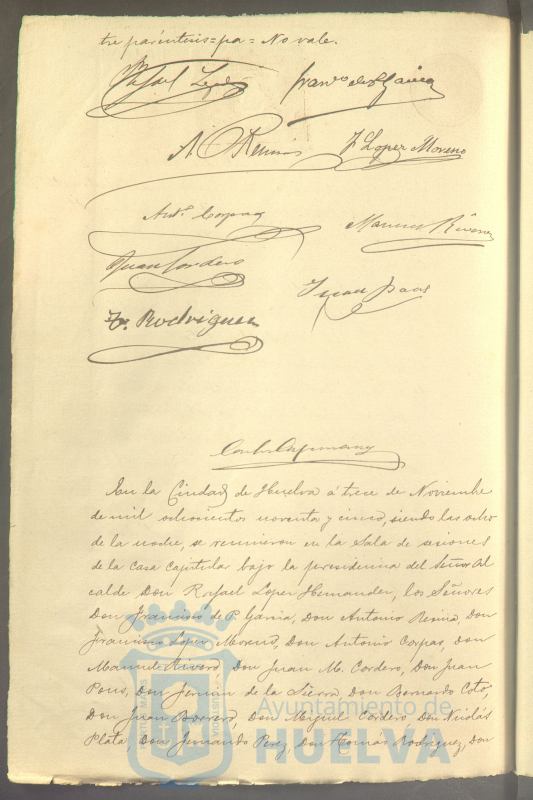 tre paréntesis=pa=No vale.
Rafael Lopez Franco de P. Garcia
A. Reinas F Lopez Moreno
Anto. Corpas Manuel Rivero
Juan Cordero
Juan Pons
T. Rodriguez
En la Ciudad de Huelva á trece de Noviembre
de mil ochocientos noventa y cinco, siendo las ocho
de la noche, se reunieron en la Sala de sesiones
de la Casa Capitular bajo la presidencia del Señor Al
calde Don Rafael Lopez Hernandez, los Señores
Don Francisco de P. Garcia, Don Antonio Reina, Don
Francisco Lopez Moreno, Don Antonio Corpas, Don
Manuel Rivero, Don Juan M. Cordero, Don Juan
Pons, Don Fermin de la Sierra, Don Bernardo Coto,
Don Juan Borrero, Don Miguel Cordero, Don Nicolás
Plata, Don Fernando Perez, Don Tomas Rodriguez, Don
Ayuntamiento de
HUELVA